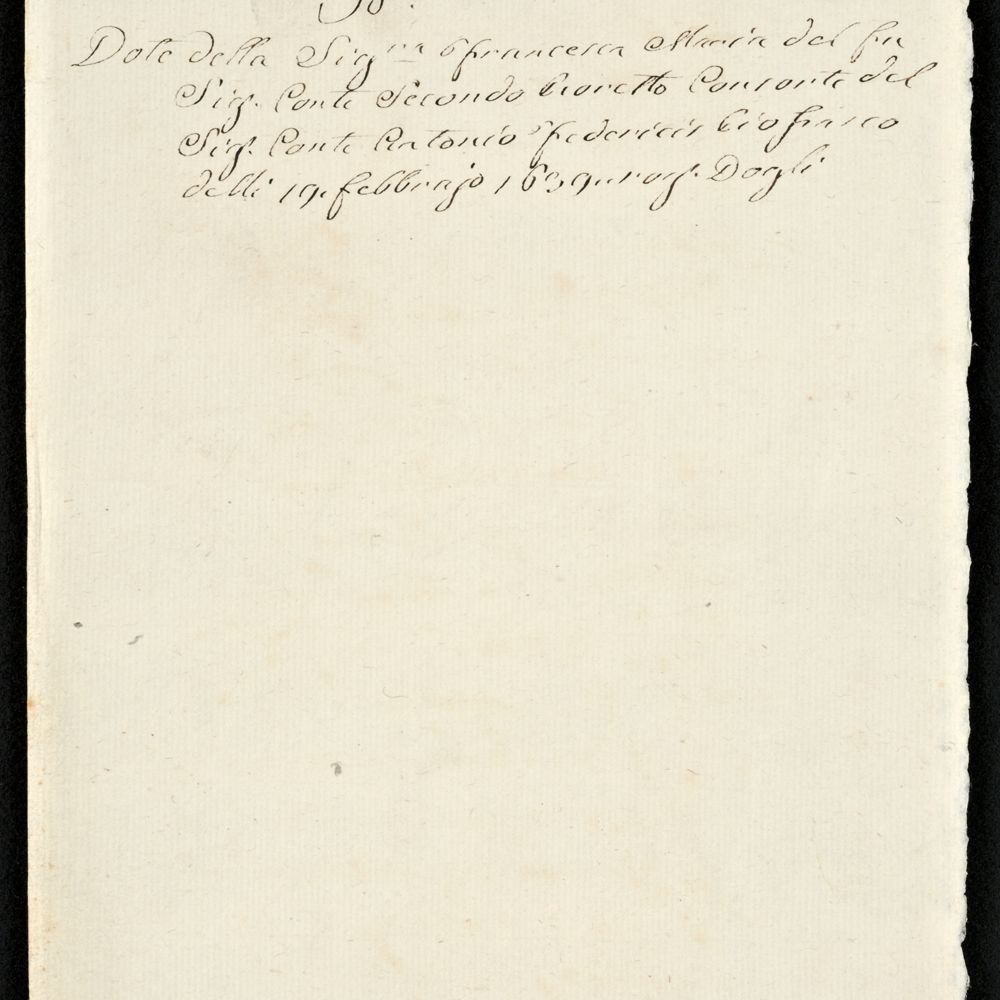 Dote della Sig.ra Francesca Maria del fu
Sig. Conte Secondo Consorte del
Sig. Conte Antonio Federicis
delli 19. Febbrajo 1639. rog. Dogli